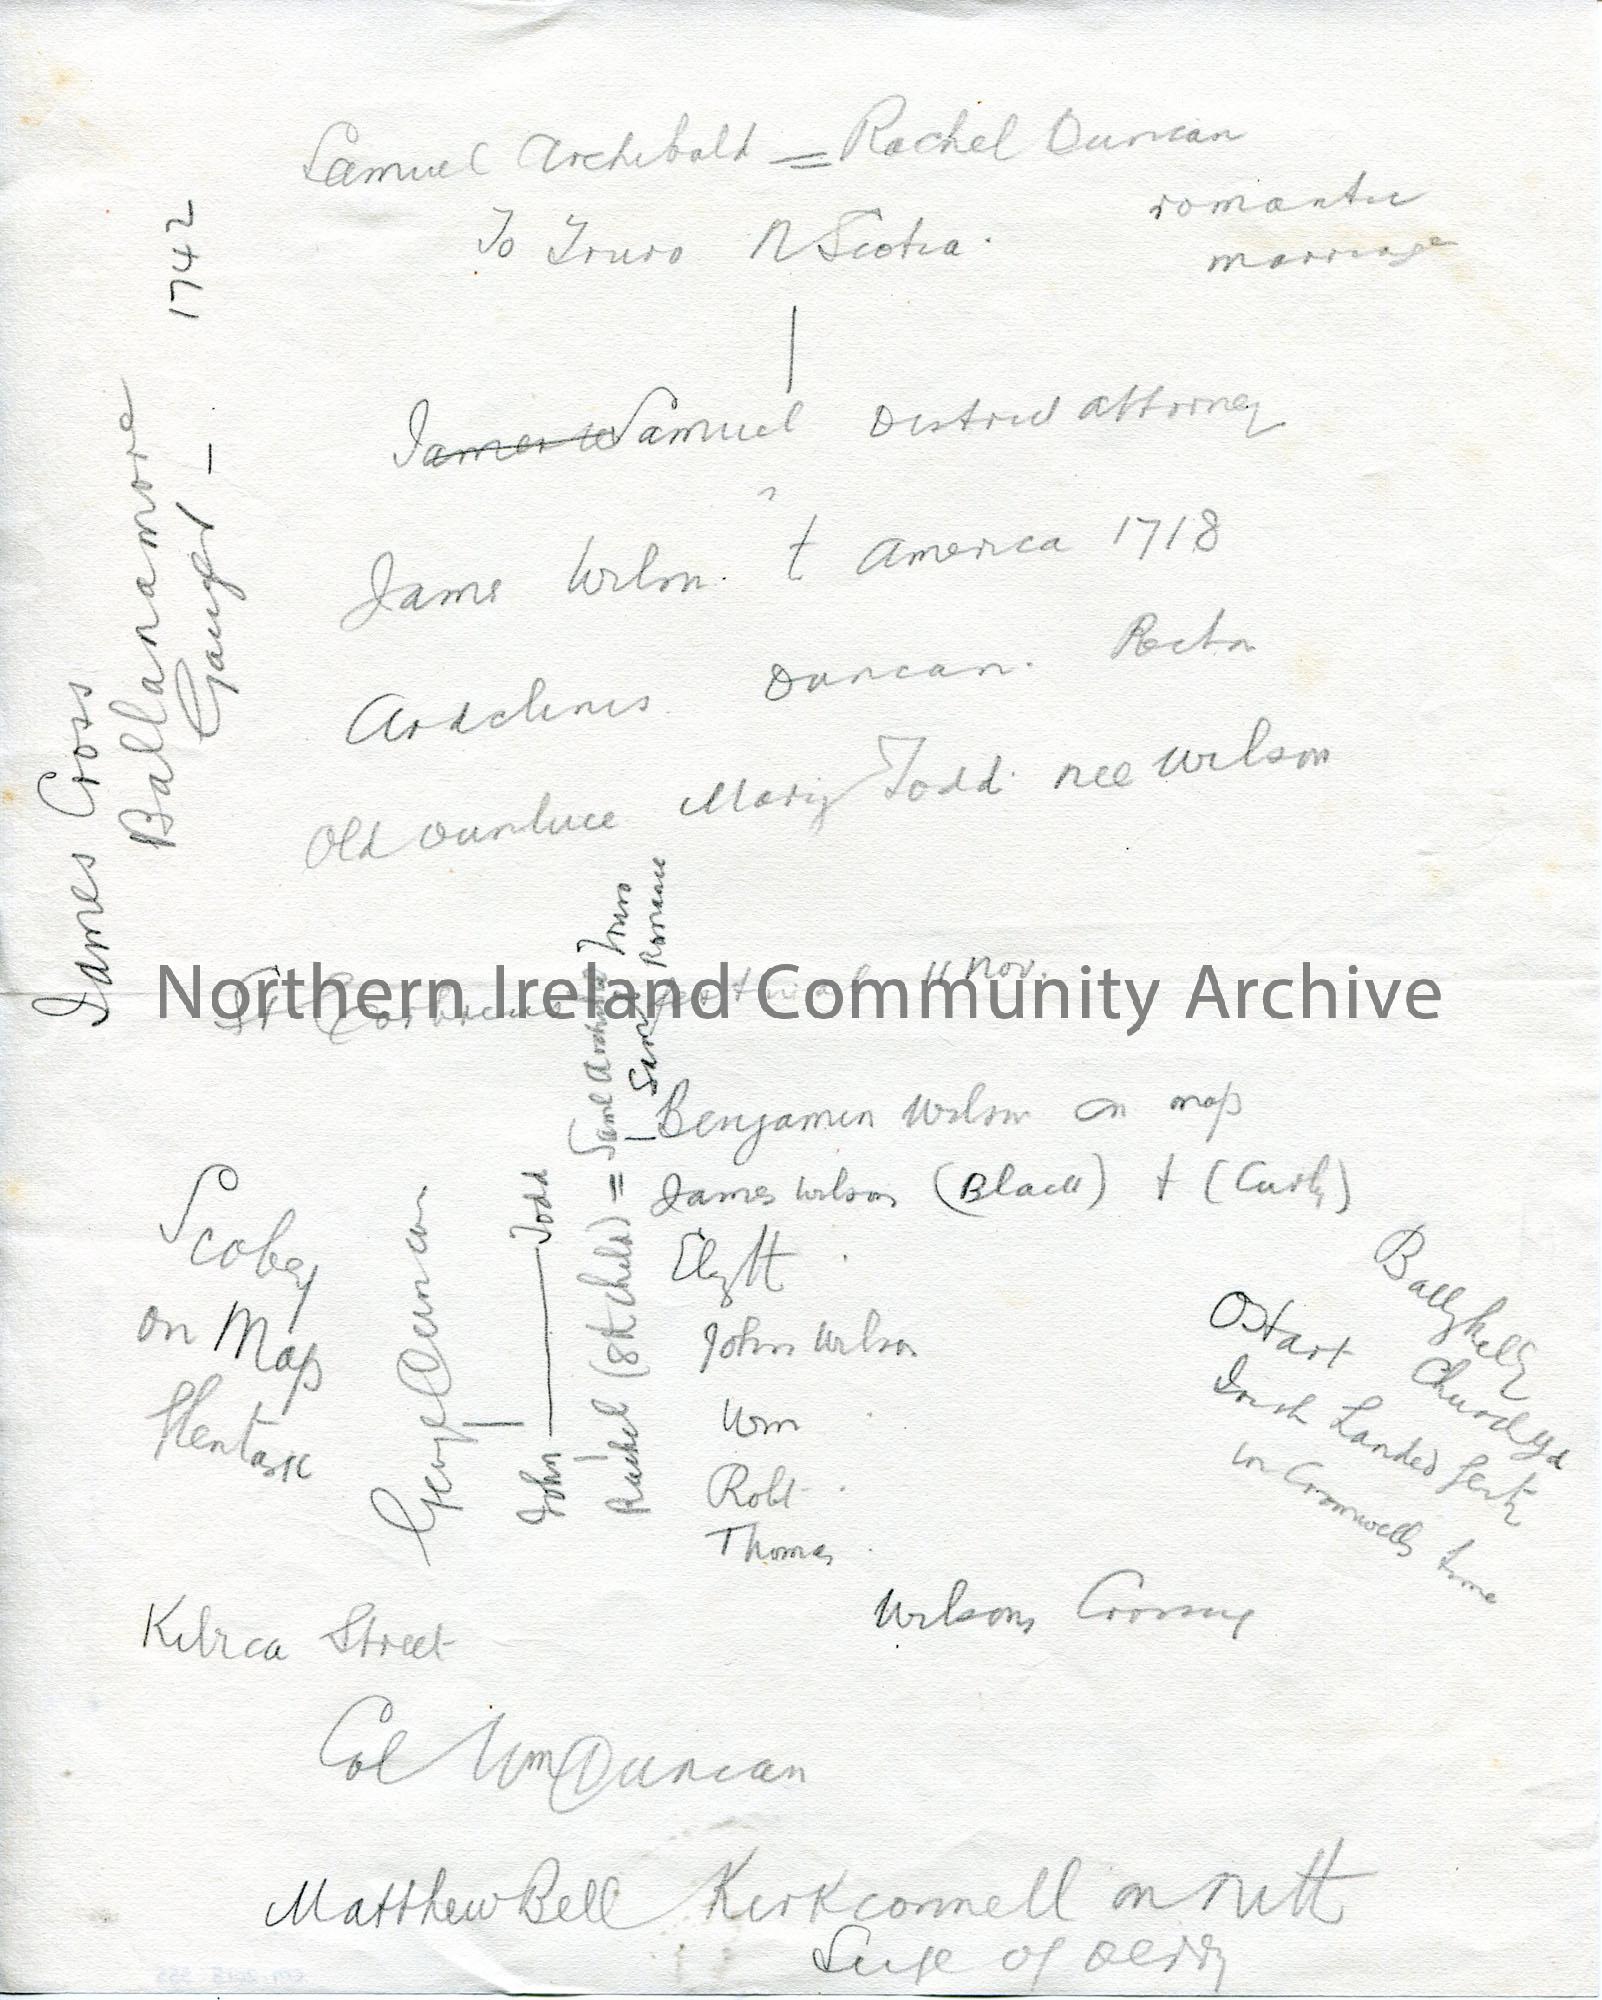 Samuel Archibald = Rachel Duncan
To Truro N Scotia.
romantic
marriage
James W Samuel District attorney
?
Jame Wilson. t America 1718
Duncan. Rector
Old Dunluce Mary Todd nee Wilson
James Cross
Ballanamore
1742
Northern Ireland Community Archive
11 Nov.
Benjamin Wilson on map
James Wilson (Black) + (Curly)
Elizth
John Wilson
Wm
Robt
Thomas
Wilsons Crossing
Scobey
on Map
George Duncan
John Todd
Rachel (8th child) = Saml Archibald Truro
Romance
Ballykelly
Churchyd
Irish Landed Gentry
in Cromwells time
Kilrea Street
Col Wm Duncan
Matthew Bell Kirkconnell on
Siege of Derry